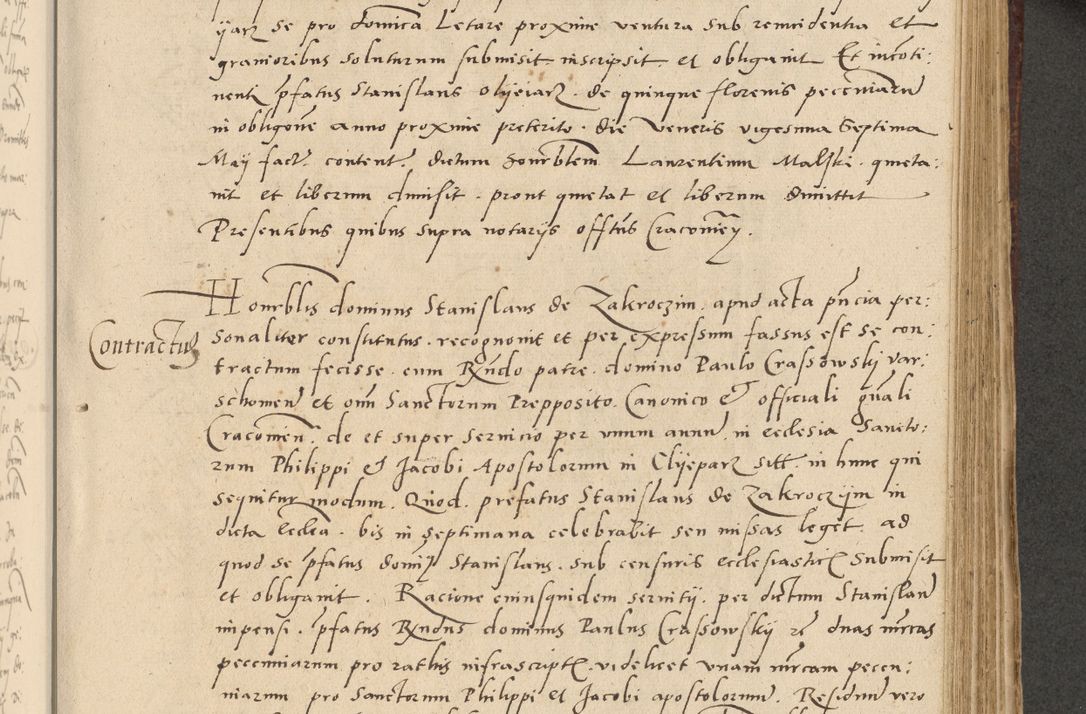 ijarz se pro dominica Letare proxime ventura sub remridentia et
granioribus soluturum submisit inscripsit et obligauit Et incoti:
nenti pfatus Stanislaus olijeiarz de quinque florenis peccuniarū
in obligone anno proxime preterito die Veneris vigesima Septima
Maij fact. content. dictum honrblem Laurentium Malski quieta:
uit et liberum dimisit prout quietat et liberum dimittit
Presentibus quibus supra notarijs offtus Cracouien.
Honrblis dominus Stanislaus de Zakroczim apud acta pncia per:
Contractus
sonaliter constitutus recognouit et per expressum fassus est se con:
tractum fecisse cum Rndo patre domino Paulo Crassowskij var:
schouien et om Sanctorum Prepposito Canonico & officiali gnali
Cracouien. de et super seruicio per vnum annū in ecclesia Sancto:
rum Philippi & Jacobi Apostolorum in Clijeparz sitt. in hunc qui
sequitur modum Quod prefatus Stanislaus de Zakroczijm in
dicta ecclia bis in septimana celebrabit seu missas leget ad
quod se pfatus domin Stanislaus sub censuris ecclesiastic submisit
et obligauit. Racione cuiusquidem seruitij per dictum Stanislaū
impensi pfatus Rndus dominus Paulus Crassowskij duas mrcas
pecuniarum pro rathis infrascript videlicet vnam mrcam pecun:
niarum pro Sanctorum Philippi et Jacobi apostolorum. Residuū vero